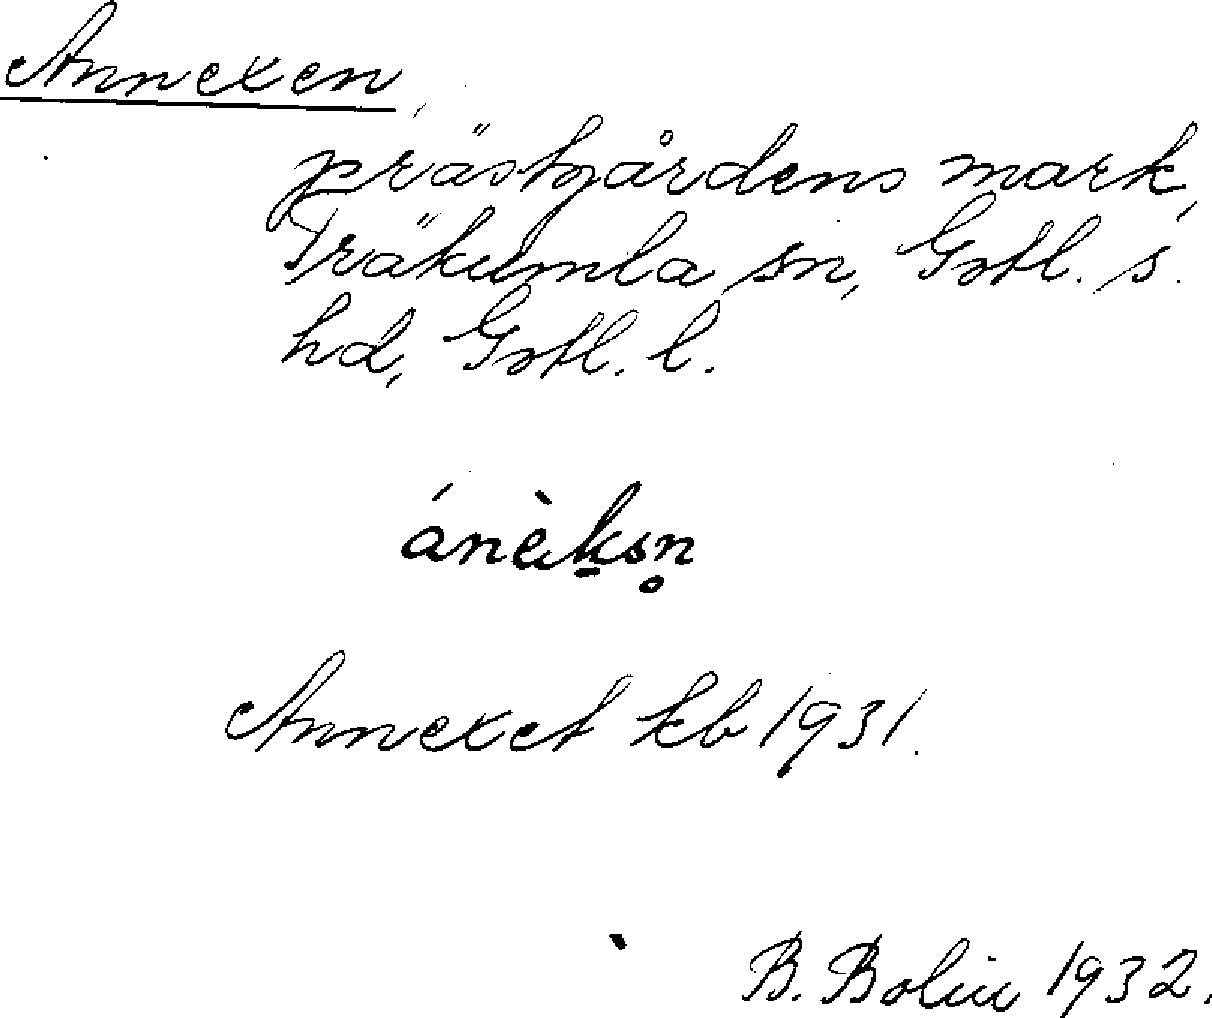 Annexen,
prästgårdens mark,
Träkumla sn, Gotl. s.
hd, Gotl. l.
ánèksn̥
Annexet kb 1931.
B. Bolin 1932.